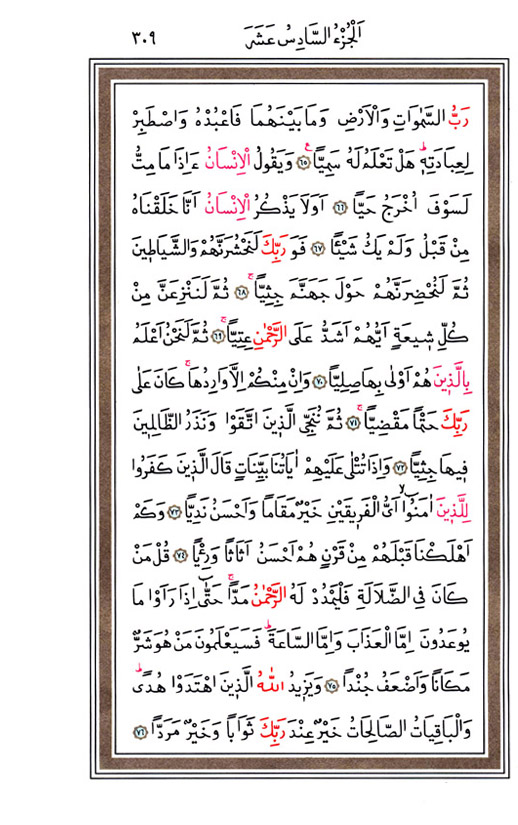 اَلْجُزْءُ السَّادِسُ عَشَرَ ٣٠٩
رَبُّ السَّمٰوَاتِ وَالْاَرْضِ وَمَا بَيْنَهُمَا فَاعْبُدْهُ وَاصْطَبِرْ
لِعِبَادَتِهٖۜ هَلْ تَعْلَمُ لَهُ سَمِيًّا ﴿٦٥﴾ وَيَقُولُ الْاِنْسَانُ ءَاِذَا مَا مِتُّ
لَسَوْفَ اُخْرَجُ حَيًّا ﴿٦٦﴾ اَوَلَا يَذْكُرُ الْاِنْسَانُ اَنَّا خَلَقْنَاهُ
مِنْ قَبْلُ وَلَمْ يَكُ شَيْـًٔا ﴿٦٧﴾ فَوَ رَبِّكَ لَنَحْشُرَنَّهُمْ وَالشَّيَاطٖينَ
ثُمَّ لَنُحْضِرَنَّهُمْ حَوْلَ جَهَنَّمَ جِثِيًّا ﴿٦٨﴾ ثُمَّ لَنَنْزِعَنَّ مِنْ
كُلِّ شٖيعَةٍ اَيُّهُمْ اَشَدُّ عَلَى الرَّحْمٰنِ عِتِيًّا ﴿٦٩﴾ ثُمَّ لَنَحْنُ اَعْلَمُ
بِالَّذٖينَ هُمْ اَوْلٰى بِهَا صِلِيًّا ﴿٧٠﴾ وَاِنْ مِنْكُمْ اِلَّا وَارِدُهَاۚ كَانَ عَلٰى
رَبِّكَ حَتْمًا مَقْضِيًّا ﴿٧١﴾ ثُمَّ نُنَجِّي الَّذٖينَ اتَّقَوْا وَنَذَرُ الظَّالِمٖينَ
فٖيهَا جِثِيًّا ﴿٧٢﴾ وَاِذَا تُتْلٰى عَلَيْهِمْ اٰيَاتُنَا بَيِّنَاتٍ قَالَ الَّذٖينَ كَفَرُوا
لِلَّذٖينَ اٰمَنُٓواۙ اَيُّ الْفَرٖيقَيْنِ خَيْرٌ مَقَامًا وَاَحْسَنُ نَدِيًّا ﴿٧٣﴾ وَكَمْ
اَهْلَكْنَا قَبْلَهُمْ مِنْ قَرْنٍ هُمْ اَحْسَنُ اَثَاثًا وَرِءْيًا ﴿٧٤﴾ قُلْ مَنْ
كَانَ فِي الضَّلَالَةِ فَلْيَمْدُدْ لَهُ الرَّحْمٰنُ مَدًّاۚ حَتّٰٓى اِذَا رَاَوْا مَا
يُوعَدُونَ اِمَّا الْعَذَابَ وَاِمَّا السَّاعَةَۜ فَسَيَعْلَمُونَ مَنْ هُوَ شَرٌّ
مَكَانًا وَاَضْعَفُ جُنْدًا ﴿٧٥﴾ وَيَزٖيدُ اللّٰهُ الَّذٖينَ اهْتَدَوْا هُدًىۜ
وَالْبَاقِيَاتُ الصَّالِحَاتُ خَيْرٌ عِنْدَ رَبِّكَ ثَوَابًا وَخَيْرٌ مَرَدًّا ﴿٧٦﴾